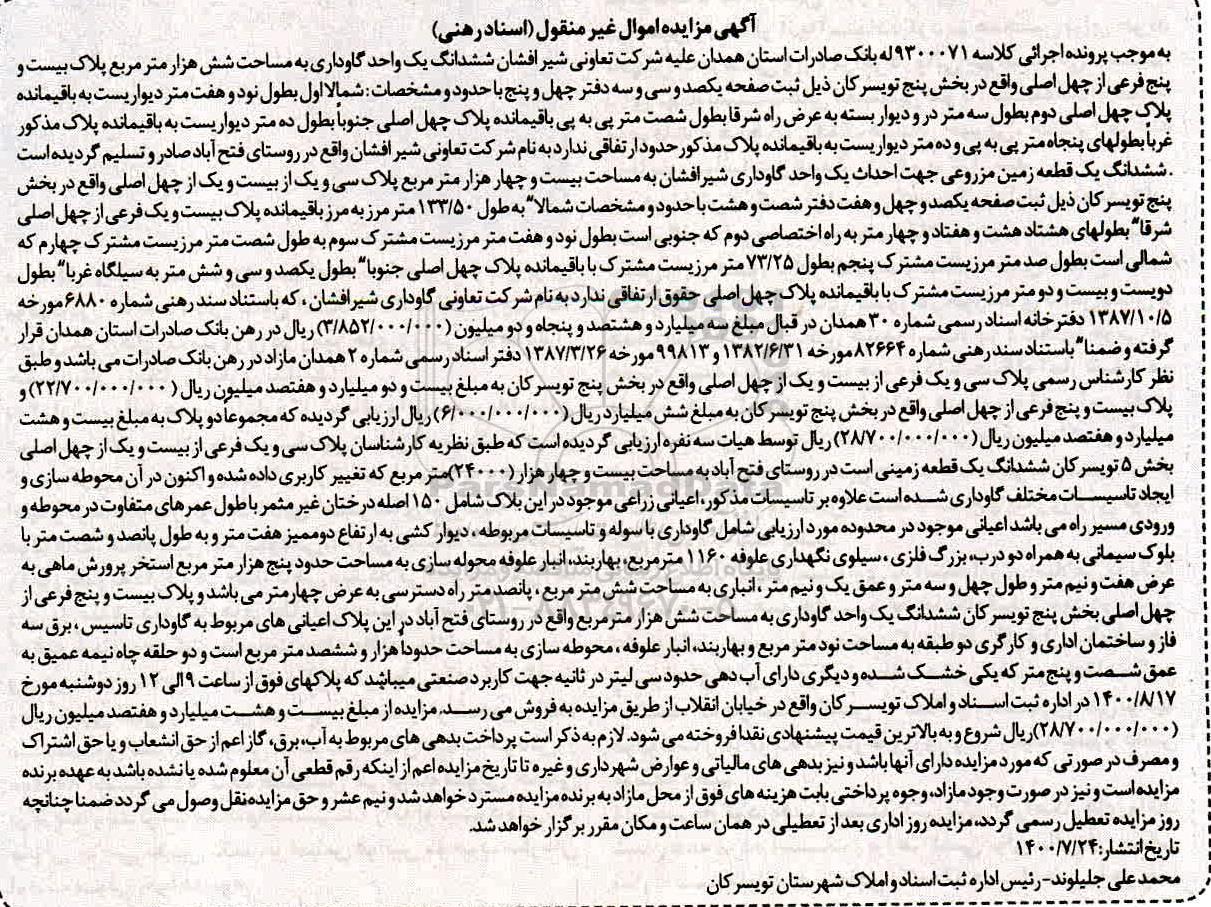 آگهی مزایده اموال غیر منقول (اسناد رهنی)
به موجب پرونده اجرائی کلاسه ۹۳۰۰۰۷۱ له بانک صادرات استان همدان علیه شرکت تعاونی شیر افشان ششدانگ یک واحد گاوداری به مساحت شش هزار متر مربع پلاک بیست و
پنج فرعی از چهل اصلی واقع در بخش پنج تویسرکان ذیل ثبت صفحه یکصد و سی و سه دفتر چهل و پنج با حدود و مشخصات : شمالا اول بطول نود و هفت متر دیواریست به باقیمانده
پلاک چهل اصلی دوم بطول سه متر در و دیوار بسته به عرض راه شرقا بطول شصت متر پی به پی باقیمانده پلاک چهل اصلی جنوباً بطول ده متر دیواریست به باقیمانده پلاک مذکور
غربا بطولهای پنجاه متر پی به پی و ده متر دیواریست به باقیمانده پلاک مذکور حدود ارتفاقی ندارد به نام شرکت تعاونی شیر افشان واقع در روستای فتح آباد صادر و تسلیم گردیده است
. ششدانگ یک قطعه زمین مزروعی جهت احداث یک واحد گاوداری شیرافشان به مساحت بیست و چهار هزار متر مربع پلاک سی و یک از بیست و یک از چهل اصلی واقع در بخش
پنج تویسرکان ذیل ثبت صفحه یکصد و چهل و هفت دفتر شصت و هشت با حدود و مشخصات شمالا" به طول ۱۳۳/۵۰ متر مرز به مرز باقیمانده پلاک بیست و یک فرعی از چهل اصلی
شرقا" بطولهای هشتاد هشت و هفتاد و چهار متر به راه اختصاصی دوم که جنوبی است بطول نود و هفت متر مرزیست مشترک سوم به طول شصت متر مرزیست مشترک چهارم که
شمالی است بطول صد متر مرزیست مشترک پنجم بطول ۷۳/۲۵ متر مرزیست مشترک با باقیمانده پلاک چهل اصلی جنوبا" بطول یکصد و سی و شش متر به سیلگاه غربا" بطول
دویست و بیست و دو متر مرزیست مشترک با باقیمانده پلاک چهل اصلی حقوق ارتفاقی ندارد به نام شرکت تعاونی گاوداری شیرافشان ، که باستناد سند رهنی شماره ۶۸۸۰ مورخه
۱۳۸۷/۱۰/۵ دفترخانه اسناد رسمی شماره ۳۰ همدان در قبال مبلغ سه میلیارد و هشتصد و پنجاه و دو میلیون (۳/۸۵۲/۰۰۰/۰۰۰) ریال در رهن بانک صادرات استان همدان قرار
گرفته و ضمنا" باستناد سند رهنی شماره ۸۲۶۶۴ مورخه ۱۳۸۲/۶/۳۱ و ۹۹۸۱۳ مورخه ۱۳۸۷/۳/۲۶ دفتر اسناد رسمی شماره ۲ همدان مازاد در رهن بانک صادرات می باشد و طبق
نظر کارشناس رسمی پلاک سی و یک فرعی از بیست و یک از چهل اصلی واقع در بخش پنج تویسرکان به مبلغ بیست و دو میلیارد و هفتصد میلیون ریال ( ۲۲/۷۰۰/۰۰۰/۰۰۰) و
پلاک بیست و پنج فرعی از چهل اصلی واقع در بخش پنج تویسرکان به مبلغ شش میلیارد ریال (۶/۰۰۰/۰۰۰/۰۰۰) ریال ارزیابی گردیده که مجموعاً دو پلاک به مبلغ بیست و هشت
میلیارد و هفتصد میلیون ریال (۲۸/۷۰۰/۰۰۰/۰۰۰) ریال توسط هیات سه نفره ارزیابی گردیده است که طبق نظریه کارشناسان پلاک سی و یک فرعی از بیست و یک از چهل اصلی
بخش ۵ تویسرکان ششدانگ یک قطعه زمینی است در روستای فتح آباد به مساحت بیست و چهار هزار (۲۴۰۰۰) متر مربع که تغییر کاربری داده شده و اکنون در آن محوطه سازی و
ایجاد تاسیسات مختلف گاوداری شده است علاوه بر تاسیسات مذکور، اعیانی زراعی موجود در این پلاک شامل ۱۵۰ اصله درختان غیر مثمر با طول عمرهای متفاوت در محوطه و
ورودی مسیر راه می باشد اعیانی موجود در محدوده مورد ارزیابی شامل گاوداری با سوله و تاسیسات مربوطه ، دیوار کشی به ارتفاع دو ممیز هفت متر و به طول پانصد و شصت متر با
بلوک سیمانی به همراه دو درب، بزرگ فلزی ، سیلوی نگهداری علوفه ۱۱۶۰ مترمربع، بهاربند، انبار علوفه محوله سازی به مساحت حدود پنج هزار متر مربع استخر پرورش ماهی به
عرض هفت و نیم متر و طول چهل و سه متر و عمق یک و نیم متر ، انباری به مساحت شش متر مربع ، پانصد متر راه دسترسی به عرض چهار متر می باشد و پلاک بیست و پنج فرعی از
چهل اصلی بخش پنج تویسرکان ششدانگ یک واحد گاوداری به مساحت شش هزار مترمربع واقع در روستای فتح آباد در این پلاک اعیانی های مربوط به گاوداری تاسیس ، برق سه
فاز و ساختمان اداری و کارگری دو طبقه به مساحت نود متر مربع و بهاربند، انبار علوفه ، محوطه سازی به مساحت حدوداً هزار و ششصد متر مربع است و دو حلقه چاه نیمه عمیق به
عمق شصت و پنج متر که یکی خشک شده و دیگری دارای آب دهی حدود سی لیتر در ثانیه جهت کاربرد صنعتی میباشد که پلاکهای فوق از ساعت ۹ الی ۱۲ روز دوشنبه مورخ
۱۴۰۰/۸/۱۷ در اداره ثبت اسناد و املاک تویسرکان واقع در خیابان انقلاب از طریق مزایده به فروش می رسد. مزایده از مبلغ بیست و هشت میلیارد و هفتصد میلیون ریال
(۲۸/۷۰۰/۰۰۰/۰۰۰) ریال شروع و به بالاترین قیمت پیشنهادی نقدا فروخته می شود. لازم به ذکر است پرداخت بدهی های مربوط به آب، برق، گاز اعم از حق انشعاب و یا حق اشتراک
و مصرف در صورتی که مورد مزایده دارای آنها باشد و نیز بدهی های مالیاتی و عوارض شهرداری و غیره تا تاریخ مزایده اعم از اینکه رقم قطعی آن معلوم شده یا نشده باشد به عهده برنده
مزایده است و نیز در صورت وجود مازاد، وجوه پرداختی بابت هزینه های فوق از محل مازاد به برنده مزایده مسترد خواهد شد و نیم عشر و حق مزایده نقل وصول می گردد ضمنا چنانچه
روز مزایده تعطیل رسمی گردد، مزایده روز اداری بعد از تعطیلی در همان ساعت و مکان مقرر برگزار خواهد شد.
تاریخ انتشار: ۱۴۰۰/۷/۲۴
محمد علی جلیلوند - رئیس اداره ثبت اسناد و املاک شهرستان تویسرکان